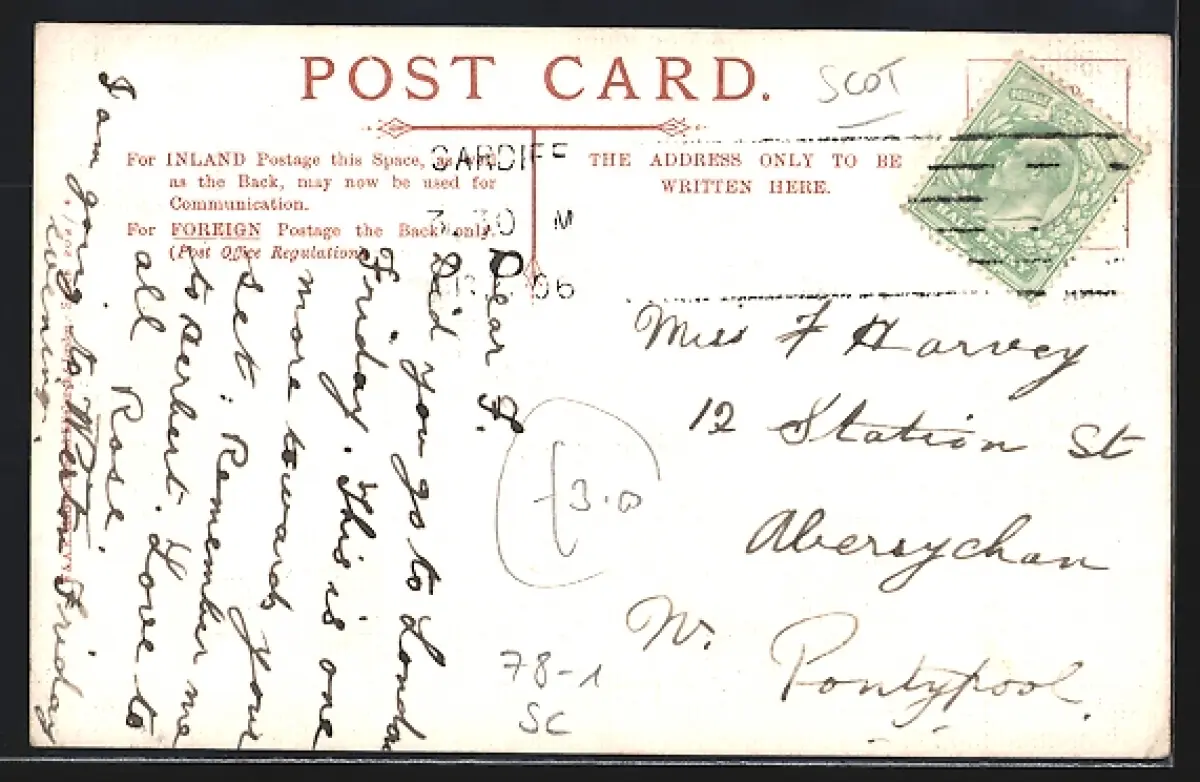 POST CARD.
SCOT
For INLAND Postage this Space, as well
as the Back, may now be used for
Communication.
For FOREIGN Postage the Back only.
(Post Office Regulation).
THE ADDRESS ONLY TO BE
WRITTEN HERE.
CARDIFF
3.30 M
06
Miss F Harvey
12 Station St
Abersychan
Nr. Pontypool.
Dear F.
Did you go to London
Friday. This is one
more towards your
set. Remember me
to Herbert. Love to
all Rose.
I am going to Weston Friday
evening.
3.0
78-1
SC